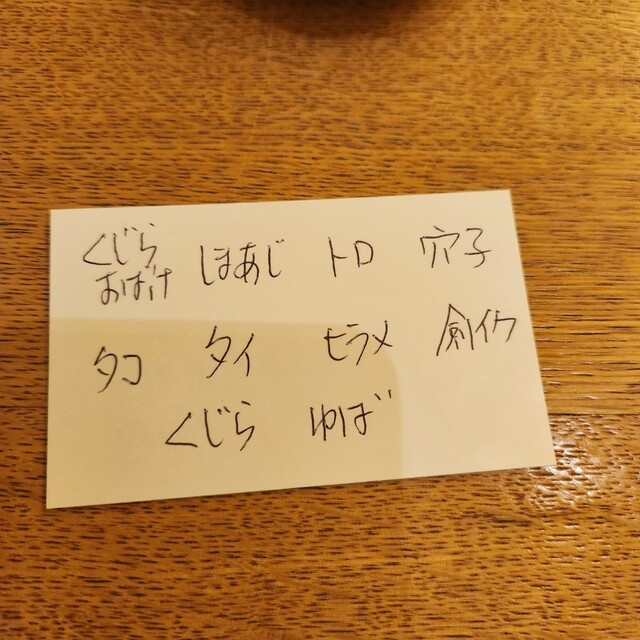 くじら しまあじ トロ 穴子
おばけ
タコ タイ ヒラメ 剣イカ
くじら ゆば